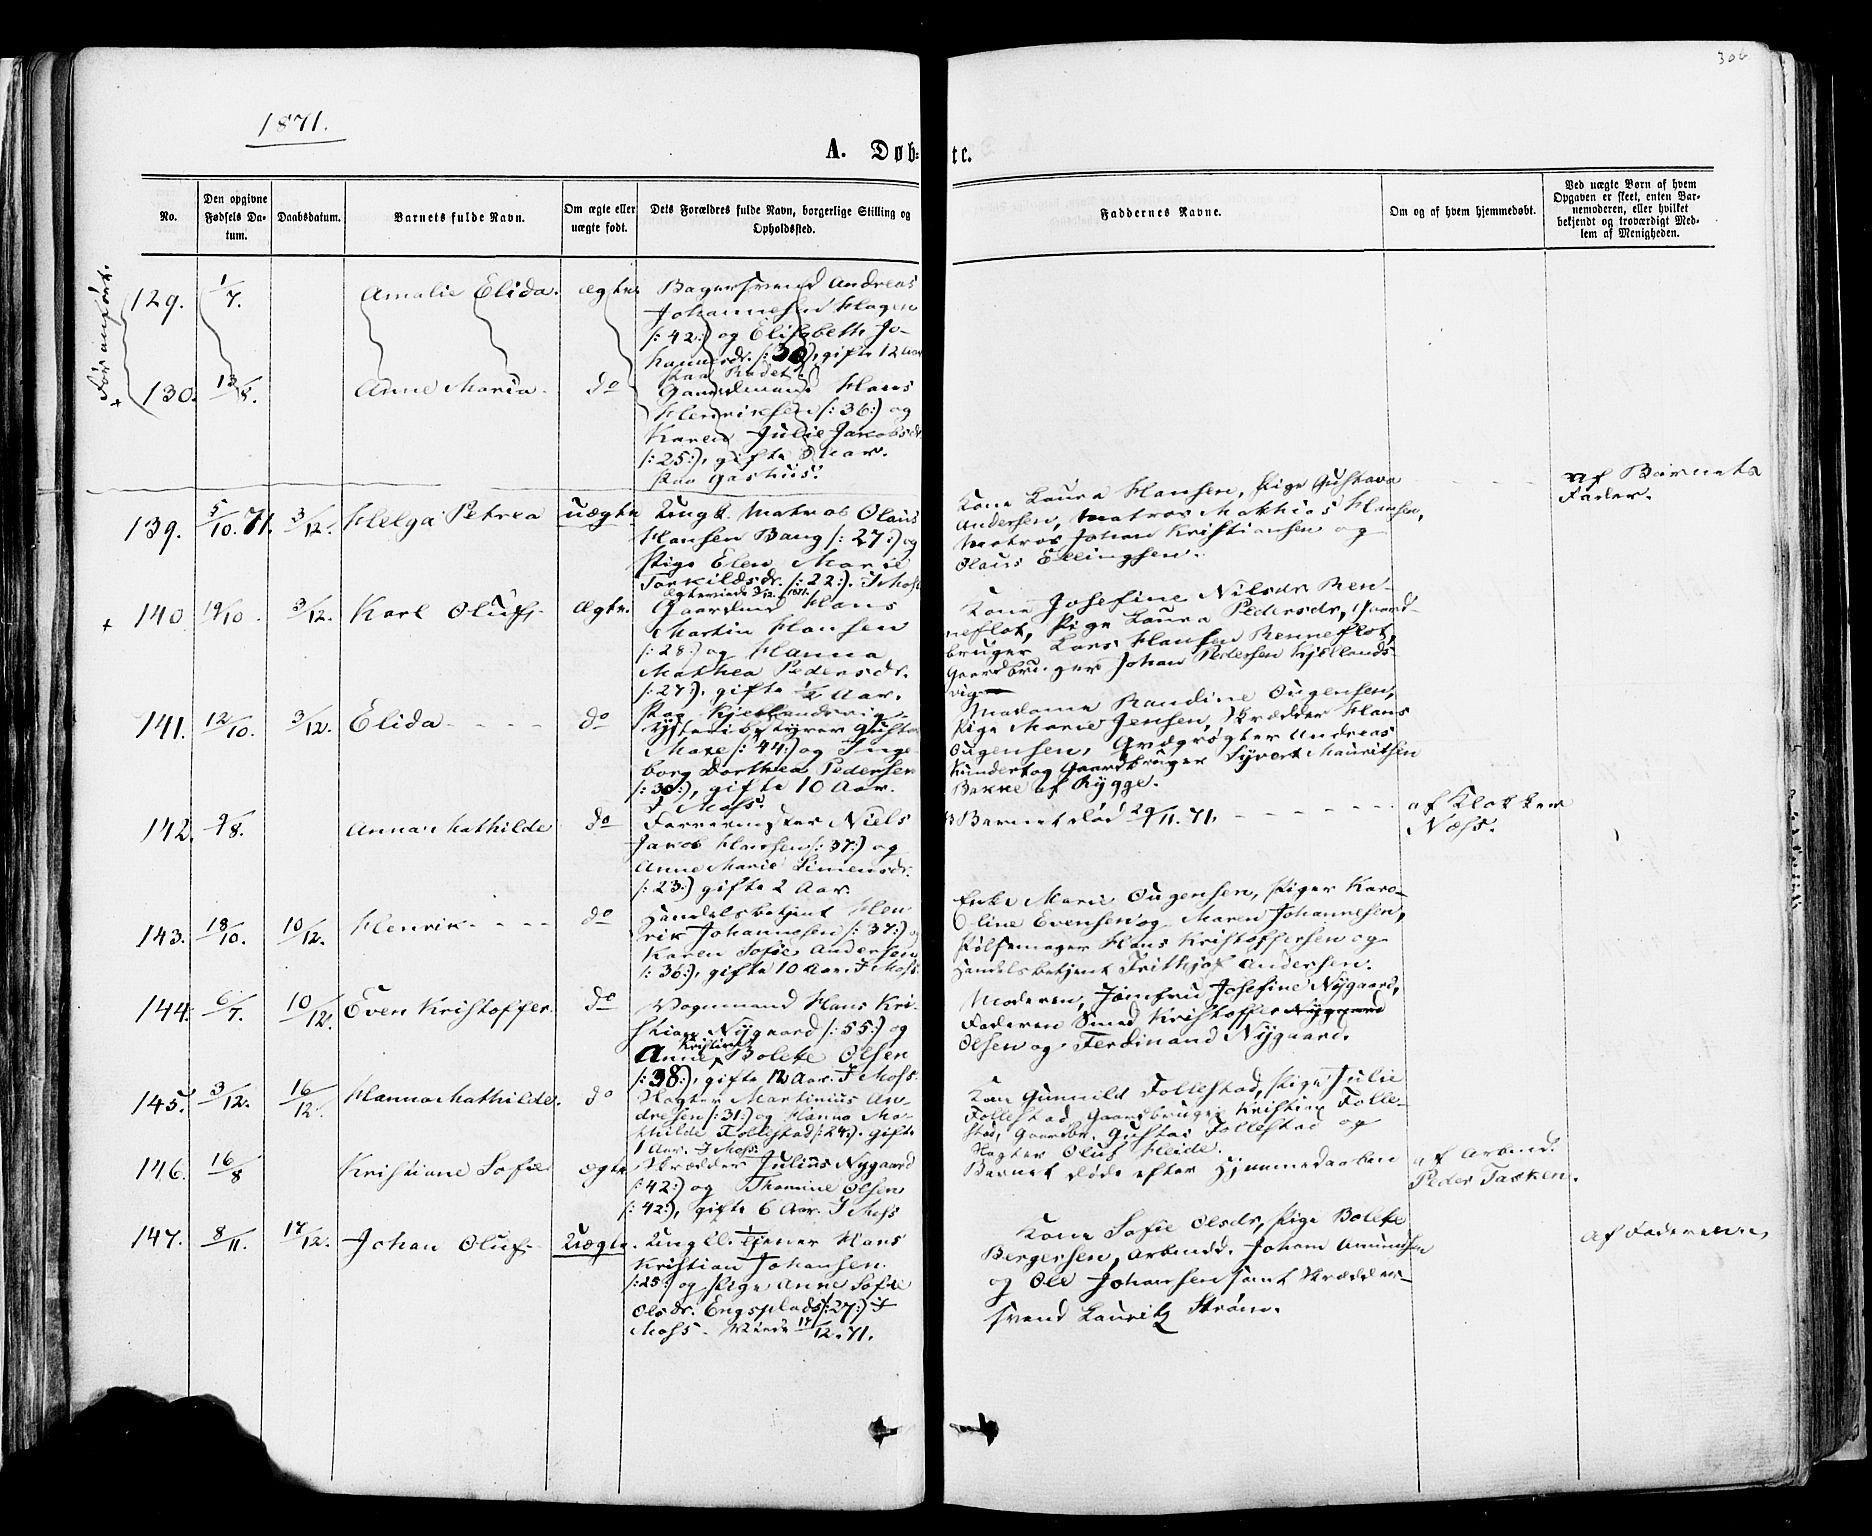 306
1871.
A. Døb-
te.
No.
Den opgivne
Fødsels Da-
tum.
Daabsdatum.
Barnets fulde Navn.
Om ægte eller
uægte født.
Dets Forældres fulde Navn, borgerlige Stilling og
Opholdssted.
Faddernes Navne.
Om og af hvem hjemmedøbt.
Ved uægte Børn af hvem
Opgaven er skeet, enten Bar-
nemoderen, eller hvilket
bekjendt og troværdigt Med-
lem af Menigheden.
Før anført.
129. 1/7. Amalie Elida. ægte. Bagersvend Andreas
Johannesen Hagen
/:42:/ og Elisabeth Jo-
hannesdr. /:30:/, gifte 12 Aar
130. 13/8. Anne Maria. do Gaardmand Hans
Henriksen /:36:/ og
Karen Julie Jakobsdr
/:25:/, gifte Aar.
paa Gashus.
139. 5/10. 71. 3/12. Helga Petrea uægte Ungk. Matros Olaus
Hansen Bang /:27:/ og
Pige Elen Marie
Torkildsdr. /:22:/. I Moss
Ægteviede 3/12. 1871.
Kone Laura Hansen, Pige Gustava
Andersen, Matros Mathias Hansen,
Matros Johan Kristiansen og
Olaus Ellingsen.
af Barnets
Fader.
+ 140. 19/10. 3/12. Karl Oluf. Ægte. Gaardmd Hans
Martin Hansen
/:28:/ og Hanna
Mathea Pedersdr.
/:27:/, gifte 1/2 Aar.
paa Kjellandsvig
Kone Josefine Nilsdr Ren-
neflot, Pige Laura Pedersdr, Gaard-
bruger Lars Hansen Renneflot,
Gaardbruger Johan Pedersen Kjellands-
vig
141. 12/10. 3/12. Elida - - - - do Gustav
/:44:/ og Inge-
borg Dorthea Pedersen
/:30:/, gifte 10 Aar.
I Moss.
Madame Randine Ougensen,
Pige Marie Jensen, Skrædder Hans
Ougensen, Andreas
og Gaardbruger Syvert Mauritsen
Bakke af Rygge.
142. 9/8. Anna Mathilde do Farvermester Niels
Jakob Hansen /:37:/ og
Anne Marie Simensdr.
/:23:/ gifte 2 Aar.
Barnet død 29/11. 71. - - - - -
af Klokker
Næss.
143. 18/10. 10/12. Henrik - - - - do Handelsbetjent Hen-
rik Johannesen /:37:/ og
Karen Sofie Andersen
/:36:/, gifte 10 Aar. I Moss.
Enke Marie Ougensen, Piger Karo-
line Evensen og Maren Johannesen,
Pølsemager Hans Kristoffersen og
Handelsbetjent Frithjof Andersen.
144. 6/7. 10/12. Even Kristoffer. do Vognmand Hans Kri-
stian Nygaard /:55:/ og
Kristine
Anne Bolette Olsen
/:38:/, gifte 12 Aar. I Moss.
Moderen, Jomfru Josefine Nygaard,
Faderen Smed Kristoffer Nygaard
Olsen og Ferdinand Nygaard.
145. 3/12. 16/12. Hanna Mathilde. do Martinius An-
dresen /:31:/ og Hanna Ma-
thilde Follestad /:24:/. gifte
1 Aar. I Moss.
Kone Gunnild Follestad, Pige Julie
Follestad, Gaardbruger Kristian Folle-
stad, Gaardbr. Gustav Follestad og
Oluf Heide.
146. 16/8 Kristiane Sofie ægte Skrædder Julius Nygaard
/:42:/ og Thomine Olsen
/:42:/, gifte 6 Aar. I Moss
Barnet døde efter Hjemmedaaben
af Arbmd.
Peder Tasken.
147. 8/11. 17/12. Johan Oluf. Uægte. Ungk. Tjener Hans
Kristian Johansen
/:25:/ og Pige Anne Sofie
Olsdr. Engsplads /:27:/ I
Moss. Viede 17/12. 71.
Kone Sofie Olsdr, Pige Bolette
Bergersen, Arbmd. Johan Amundsen
og Ole Johansen samt Skrædder-
svend Lauritz Strøm.
af Faderen